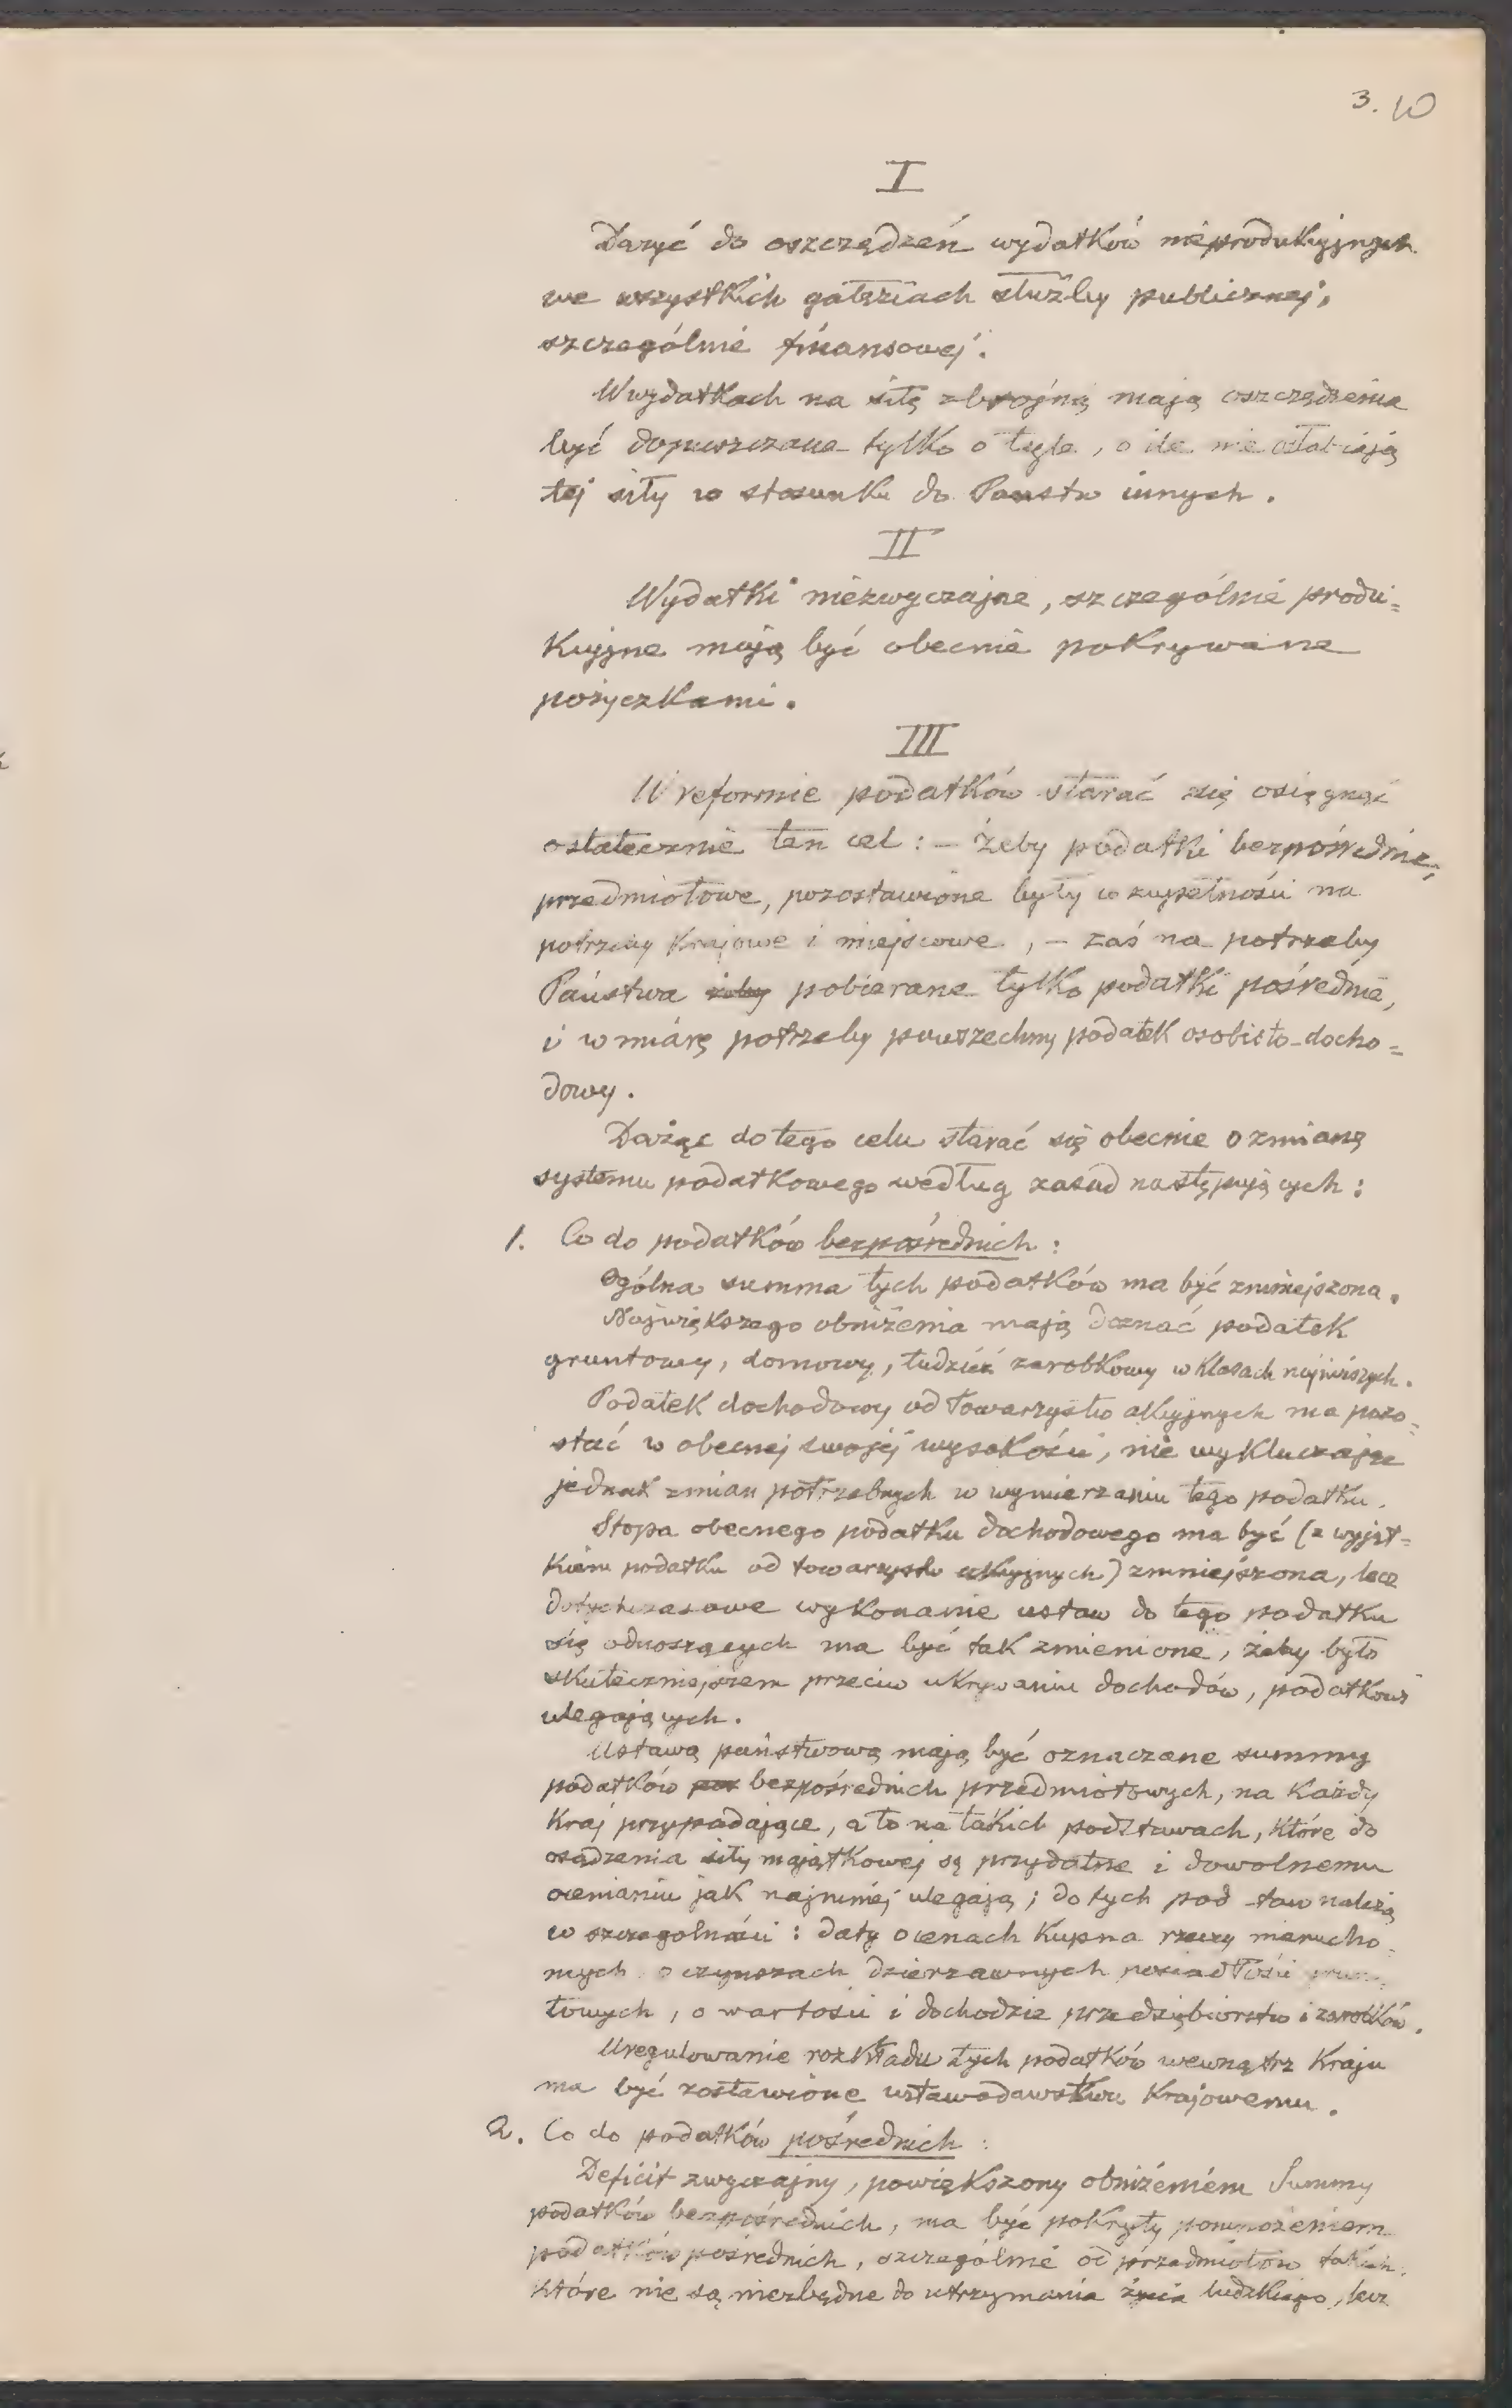 3. 10
I
Dążyć do oszczędzeń wydatków nieprodukcyjnych
we wszystkich gałęziach służby publicznej,
szczególnie finansowej.
W wydatkach na siłę zbrojną mają oszczędzenia
być dopuszczane tylko o tyle, o ile nie osłabiają
tej siły w stosunku do Państw innych.
II
Wydatki niezwyczajne, szczególnie produ=
kcyjne mają być obecnie pokrywane
pożyczkami.
III
W reformie podatków starać się osięgnąć
ostatecznie ten cel: – żeby podatki bezpośrednie,
przedmiotowe, pozostawione były w zupełności na
potrzeby krajowe i miejscowe, – zaś na potrzeby
Państwa żeby pobierane tylko podatki pośrednie,
i w miarę potrzeby powszechny podatek osobisto-docho=
dowy.
Dążąc do tego celu starać się obecnie o zmianę
systemu podatkowego według zasad następujących:
1. Co do podatków bezpośrednich:
Ogólna summa tych podatków ma być zmniejszona.
Największego obniżenia mają doznać podatek
gruntowy, domowy, tudzież zarobkowy w klasach najniższych.
Podatek dochodowy od Towarzystw akcyjnych ma pozo=
stać w obecnej swojej wysokości, nie wykluczając
jednak zmian potrzebnych w wymierzaniu tego podatku.
Stopa obecnego podatku dochodowego ma być (z wyjąt=
kiem podatku od towarzystw akcyjnych) zmniejszona, lecz
dotychczasowe wykonanie ustaw do tego podatku
się odnoszących ma być tak zmienione, żeby było
skuteczniejszem przeciw ukrywaniu dochodów, podatkowi
ulegających.
Ustawą państwową mają być oznaczane summy
podatków bezpośrednich przedmiotowych, na każdy
kraj przypadające, a to na takich podstawach, które do
osądzenia siły majątkowej są przydatne i dowolnemu
ocenianiu jak najmniej ulegają; do tych podstaw należą
w szczególności: daty o cenach kupna rzeczy nierucho=
mych o czynszach dzierżawnych posiadłości grun=
towych, o wartości i dochodzie przedsiębiorstw i zarobków.
Uregulowanie rozkładu tych podatków wewnątrz kraju
ma być zostawione ustawodawstwu krajowemu.
2. Co do podatków pośrednich:
Deficit zwyczajny, powiększony obniżeniem Summy
podatków bezpośrednich, ma być pokryty pomnożeniem
podatków pośrednich, szczególnie od przedmiotów takich,
które nie są niezbędne do utrzymania życia ludzkiego, lecz